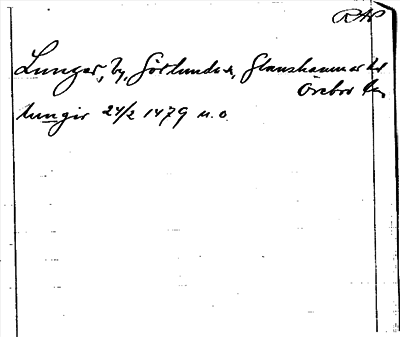 RAP
Lunger, by, Götlunda sn, Glanshammar hd
Örebro län
lungir 24/2 1479 u.o.